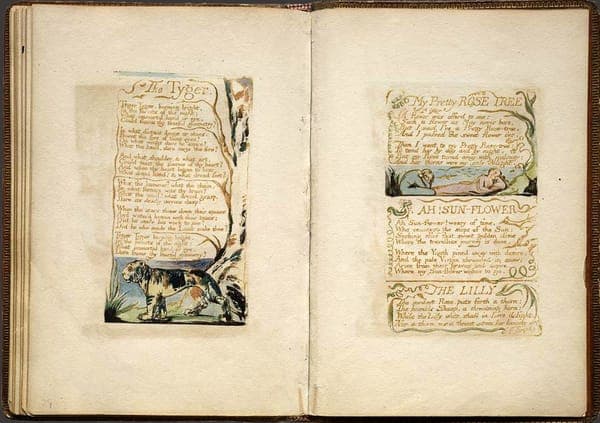 The Tyger.
Tyger Tyger, burning bright,
In the forests of the night;
What immortal hand or eye,
Could frame thy fearful symmetry?
In what distant deeps or skies
Burnt the fire of thine eyes?
On what wings dare he aspire?
What the hand, dare sieze the fire?
And what shoulder, & what art,
Could twist the sinews of thy heart?
And when thy heart began to beat,
What dread hand? & what dread feet?
What the hammer? what the chain,
In what furnace was thy brain?
What the anvil? what dread grasp,
Dare its deadly terrors clasp?
When the stars threw down their spears
And water'd heaven with their tears:
Did he smile his work to see?
Did he who made the Lamb make thee?
Tyger
In the forests of the night:
What immortal hand or eye,
Dare frame thy fearful symmetry?
My Pretty ROSE TREE
A flower was offerd to me:
Such a flower as May never bore,
But I said I've a Pretty Rose-tree,
And I passed the sweet flower o'er.
Then I went to my Pretty Rose-tree:
To tend her by day and by night.
But my Rose turnd away with jealousy:
And her thorns were my only delight.
AH! SUN-FLOWER
Ah Sun-flower! weary of time,
Who countest the steps of the Sun:
Seeking after that sweet golden clime
Where the travellers journey is done.
Where the Youth pined away with desire,
And the pale Virgin shrouded in snow:
Arise from their graves and aspire,
Where my Sun-flower wishes to go.
THE LILLY
The modest Rose puts forth a thorn:
The humble Sheep, a threatning horn:
While the Lilly white, shall in Love delight,
Nor a thorn nor a threat stain her beauty
bright